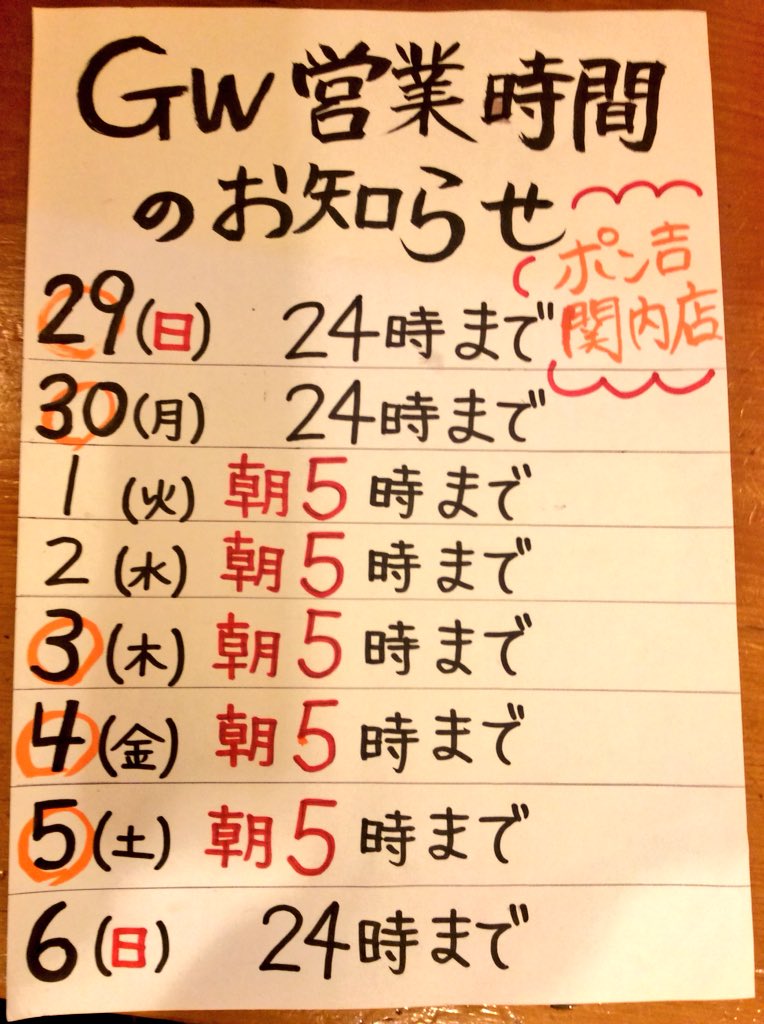 GW営業時間
のお知らせ
ポン吉
関内店
29(日) 24時まで
30(月) 24時まで
1(火) 朝5時まで
2(水) 朝5時まで
3(木) 朝5時まで
4(金) 朝5時まで
5(土) 朝5時まで
6(日) 24時まで